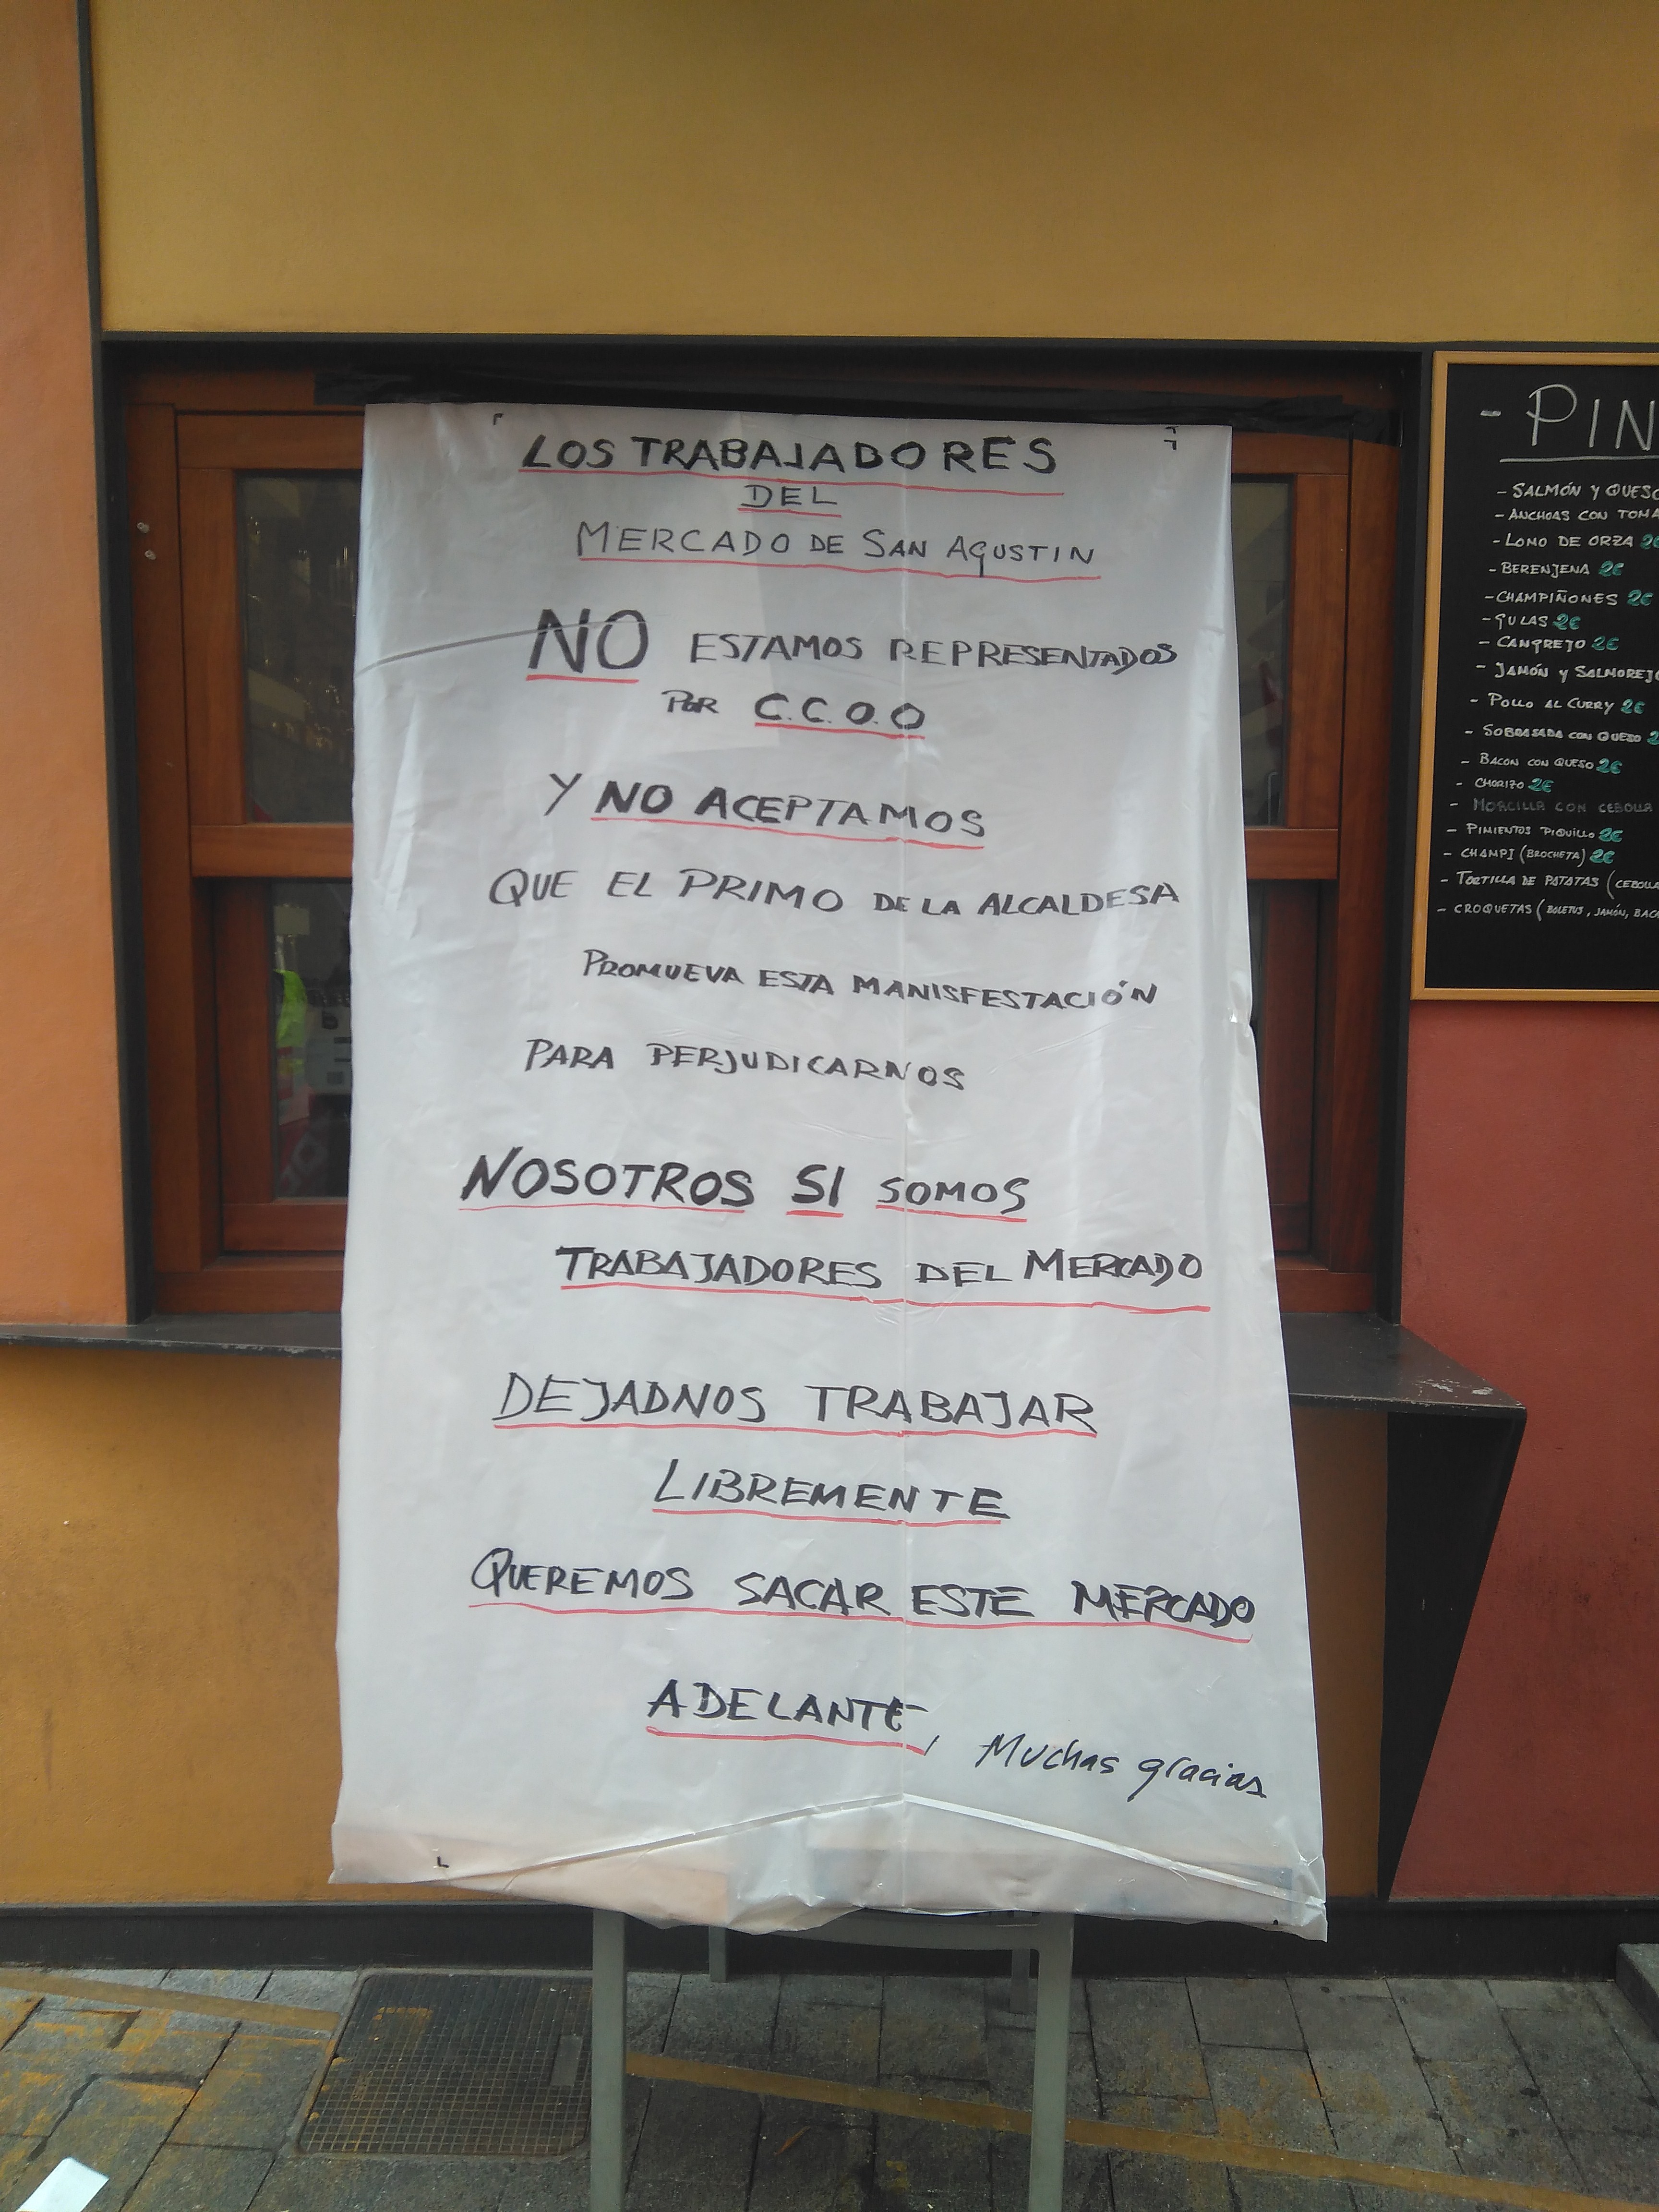 LOS TRABAJADORES
DEL
MERCADO DE SAN AGUSTIN
NO ESTAMOS REPRESENTADOS
POR C.C.O.O
Y NO ACEPTAMOS
QUE EL PRIMO DE LA ALCALDESA
PROMUEVA ESTA MANISFESTACIÓN
PARA PERJUDICARNOS
NOSOTROS SI SOMOS
TRABAJADORES DEL MERCADO
DEJADNOS TRABAJAR
LIBREMENTE
QUEREMOS SACAR ESTE MERCADO
ADELANTE, Muchas gracias
- PIN
- SALMÓN Y QUESO
- ANCHOAS CON TOMA
- LOMO DE ORZA 2€
- BERENJENA 2€
- CHAMPIÑONES 2€
- GULAS 2€
- CANGREJO 2€
- JAMÓN Y SALMOREJO
- POLLO AL CURRY 2€
- SOBRASADA CON QUESO 2
- BACON CON QUESO 2€
- CHORIZO 2€
- MORCILLA CON CEBOLLA
- PIMIENTOS PIQUILLO 2€
- CHAMPI (BROCHETA) 2€
- TORTILLA DE PATATAS (CEBOLLA
- CROQUETAS (BOLETUS, JAMÓN, BAC